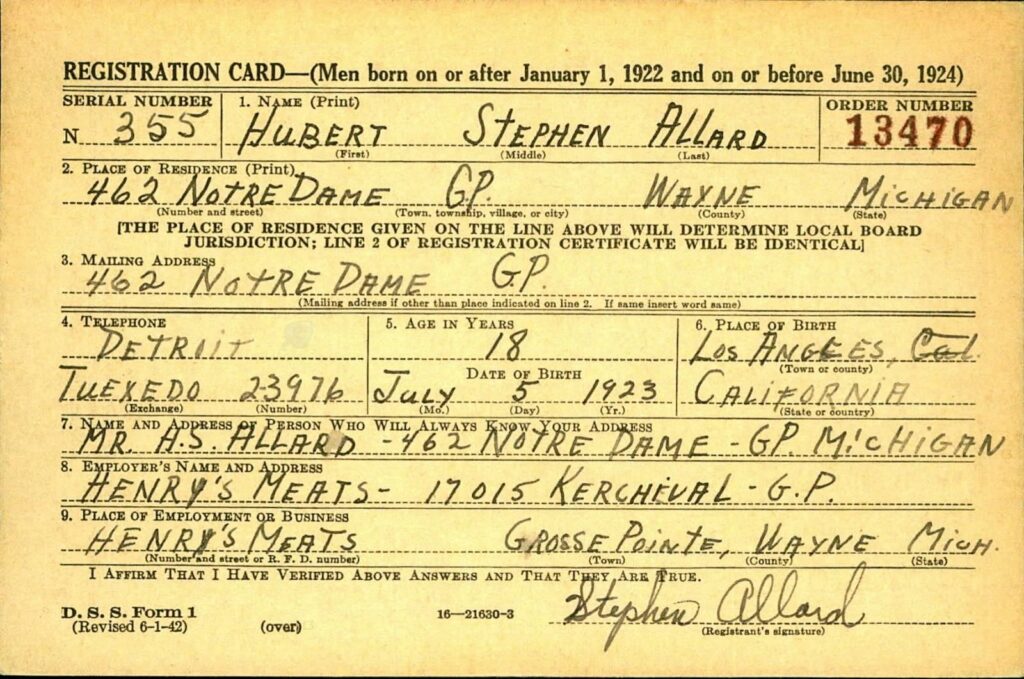 REGISTRATION CARD—(Men born on or after January 1, 1922 and on or before June 30, 1924)
SERIAL NUMBER
1. NAME (Print)
ORDER NUMBER
N 355
HUBERT STEPHEN ALLARD
13470
(First) (Middle) (Last)
2. PLACE OF RESIDENCE (Print)
462 NOTRE DAME G.P. WAYNE MICHIGAN
(Number and street) (Town, township, village, or city) (County) (State)
[THE PLACE OF RESIDENCE GIVEN ON THE LINE ABOVE WILL DETERMINE LOCAL BOARD
JURISDICTION; LINE 2 OF REGISTRATION CERTIFICATE WILL BE IDENTICAL]
3. MAILING ADDRESS
462 NOTRE DAME G.P.
(Mailing address if other than place indicated on line 2. If same insert word same)
4. TELEPHONE
DETROIT
TUEXEDO 23976
(Exchange) (Number)
5. AGE IN YEARS
18
DATE OF BIRTH
JULY 5 1923
(Mo.) (Day) (Yr.)
6. PLACE OF BIRTH
LOS ANGEES, Cal.
(Town or county)
CALIFORNIA
(State or country)
7. NAME AND ADDRESS OF PERSON WHO WILL ALWAYS KNOW YOUR ADDRESS
MR. H.S. ALLARD - 462 NOTRE DAME - GP. MICHIGAN
8. EMPLOYER'S NAME AND ADDRESS
HENRY'S MEATS - 17015 KERCHEVAL - G.P.
9. PLACE OF EMPLOYMENT OR BUSINESS
HENRY'S MEATS GROSSE POINTE, WAYNE MICH.
(Number and street or R. F. D. number) (Town) (County) (State)
I AFFIRM THAT I HAVE VERIFIED ABOVE ANSWERS AND THAT THEY ARE TRUE.
D. S. S. Form 1
(Revised 6-1-42) (over)
16—21630-3
Stephen Allard
(Registrant's signature)